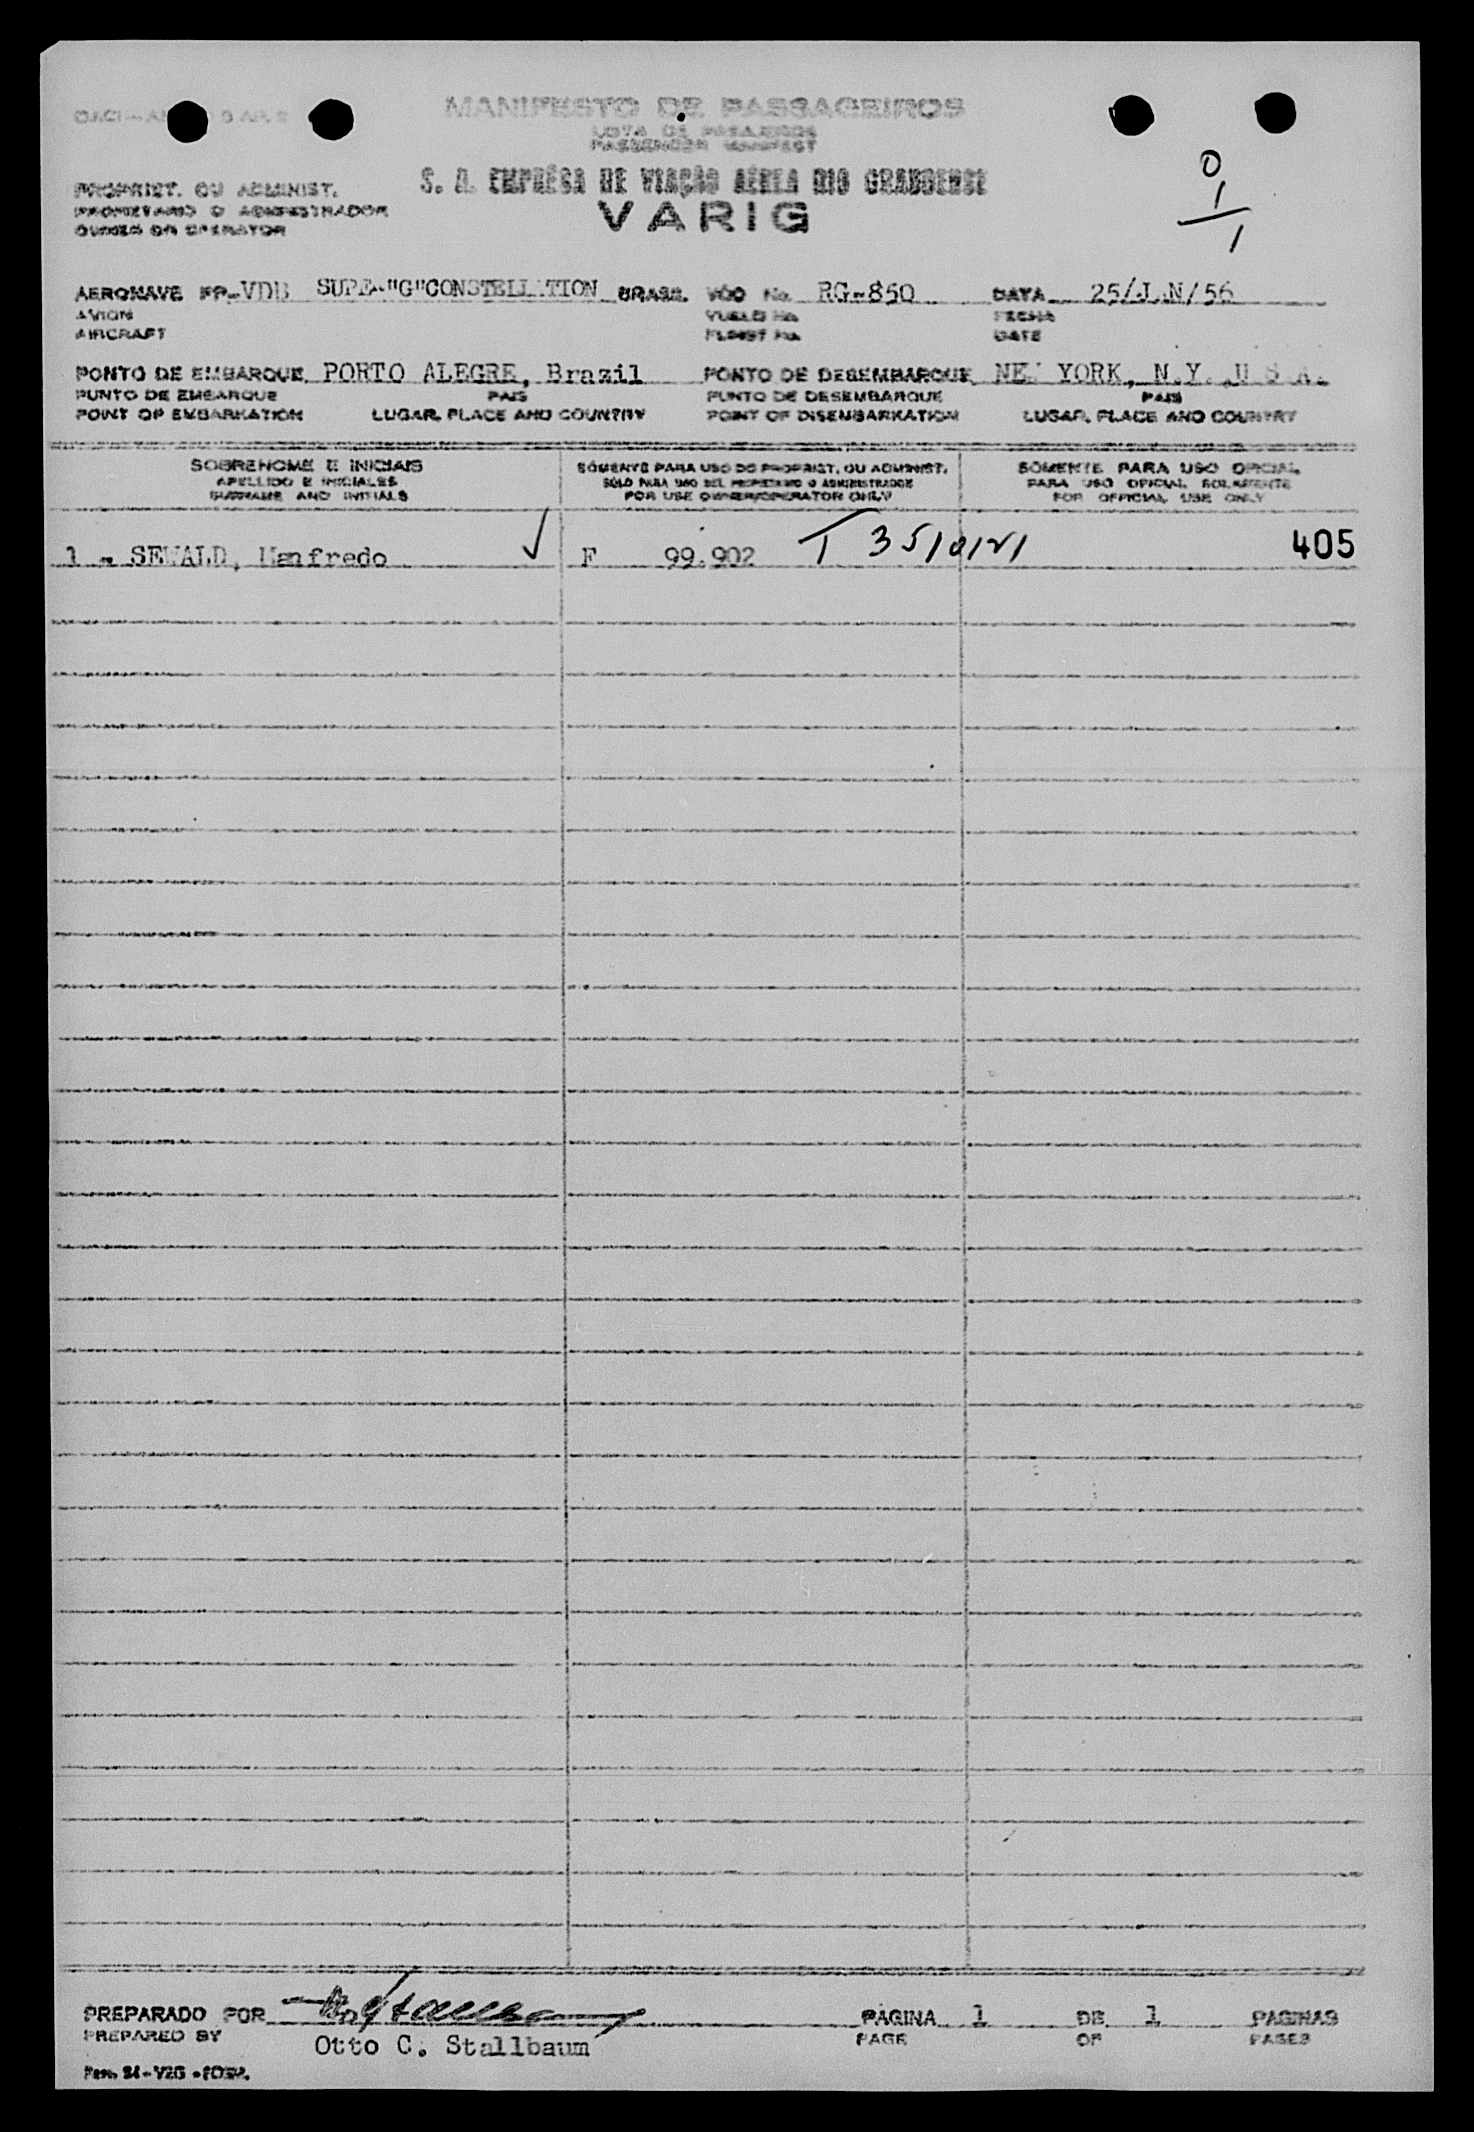 MANIFESTO DE PASSAGEIROS
LISTA DE PASAJEROS
PASSENGER MANIFEST
PROPRIET. OU ADMINIST.
S. A. EMPRÊSA DE VIAÇÃO AÉREA RIO GRANDENSE
PROPIETARIO O ADMINISTRADOR
VARIG
OWNER OR OPERATOR
0
1
1
AERONAVE PP-VDB SUPER"G"CONSTELLATION BRASIL VÔO No. RG-850 DATA 25/JAN/56
AVION VUELO No. FECHA
AIRCRAFT FLIGHT No. DATE
PONTO DE EMBARQUE PORTO ALEGRE, Brazil PONTO DE DESEMBARQUE NEW YORK, N.Y. U S A.
PUNTO DE EMBARQUE PAIS PUNTO DE DESEMBARQUE PAIS
POINT OF EMBARKATION LUGAR, PLACE AND COUNTRY POINT OF DISEMBARKATION LUGAR, PLACE AND COUNTRY
SOBRENOME E INICIAIS SÓMENTE PARA USO DO PROPRIET. OU ADMINIST. SÓMENTE PARA USO OFICIAL
APELLIDO E INICIALES SÓLO PARA USO DEL PROPIETARIO O ADMINISTRADOR PARA USO OFICIAL SOLAMENTE
SURNAME AND INITIALS FOR USE OWNER/OPERATOR ONLY FOR OFFICIAL USE ONLY
1 - SEWALD, Manfredo ✓ F 99.902 T 35/0/21 405
PREPARADO POR PÁGINA 1 DE 1 PÁGINAS
PREPARED BY Otto C. Stallbaum PAGE OF PAGES